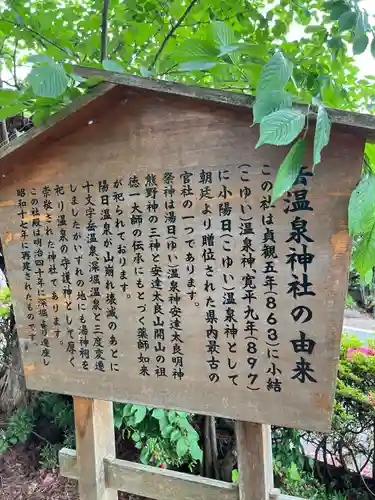 岳温泉神社の由来
この社は貞観五年(863)に小結
(こゆい)温泉神、寛平九年(897)
に小陽日(こゆい)温泉神として
朝廷より贈位された県内最古の
官社の一つであります。
祭神は湯日(ゆい)温泉神安達太良明神
熊野神の三神と安達太良山開山の祖
徳一大師の伝承にもとづく薬師如来
が祀られております。
陽日温泉が山崩れ壊滅のあとに
十文字岳温泉、深堀温泉と三度変遷
しましたがいずれの地にも湯神祠を
祀り温泉の守護神として厚く
崇敬された神社であります。
この社殿は明治四十年に深堀より遷座し
昭和十七年に再建されたものです。